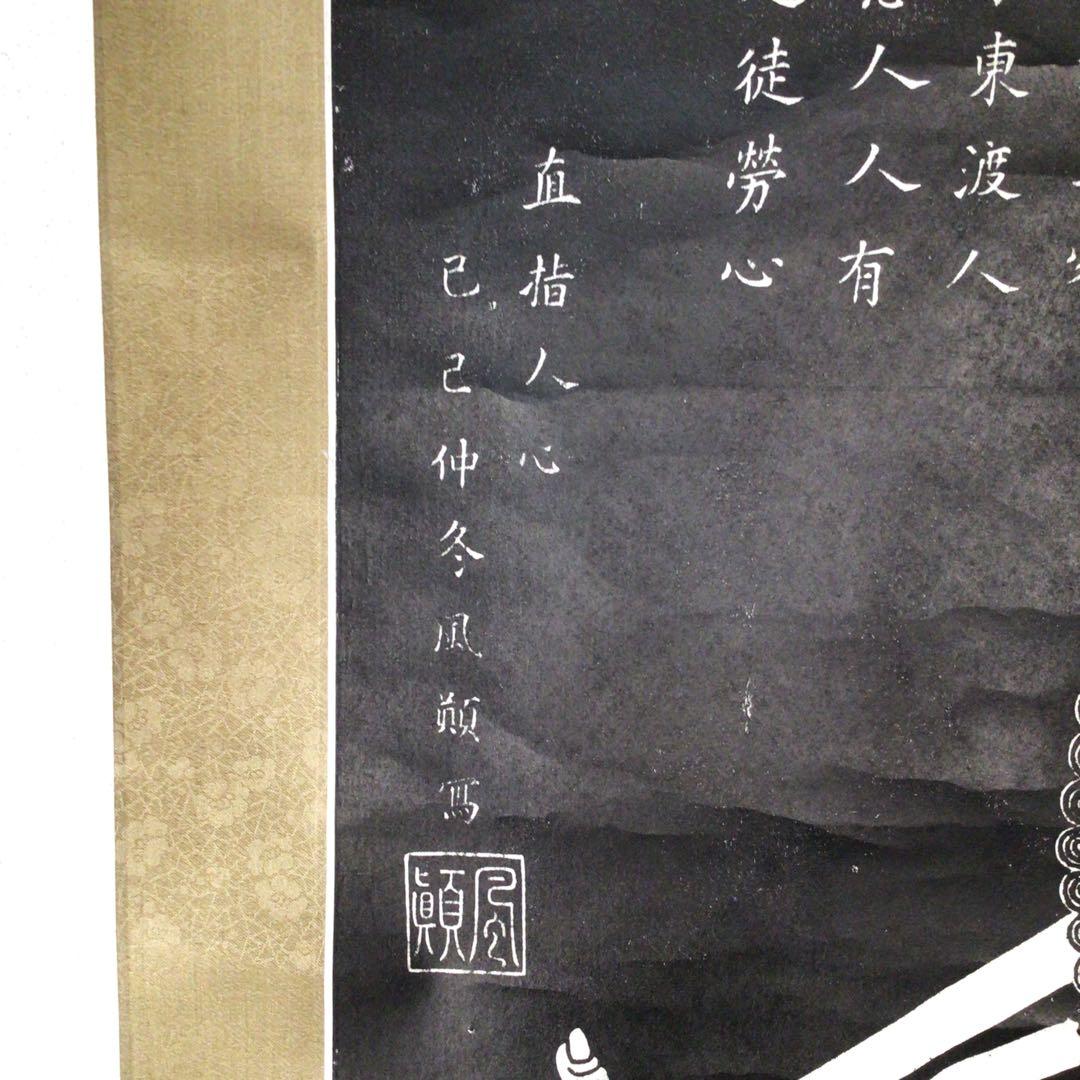 東渡人
人人有
徒勞心
直指人心
己巳仲冬風顛寫
風顛